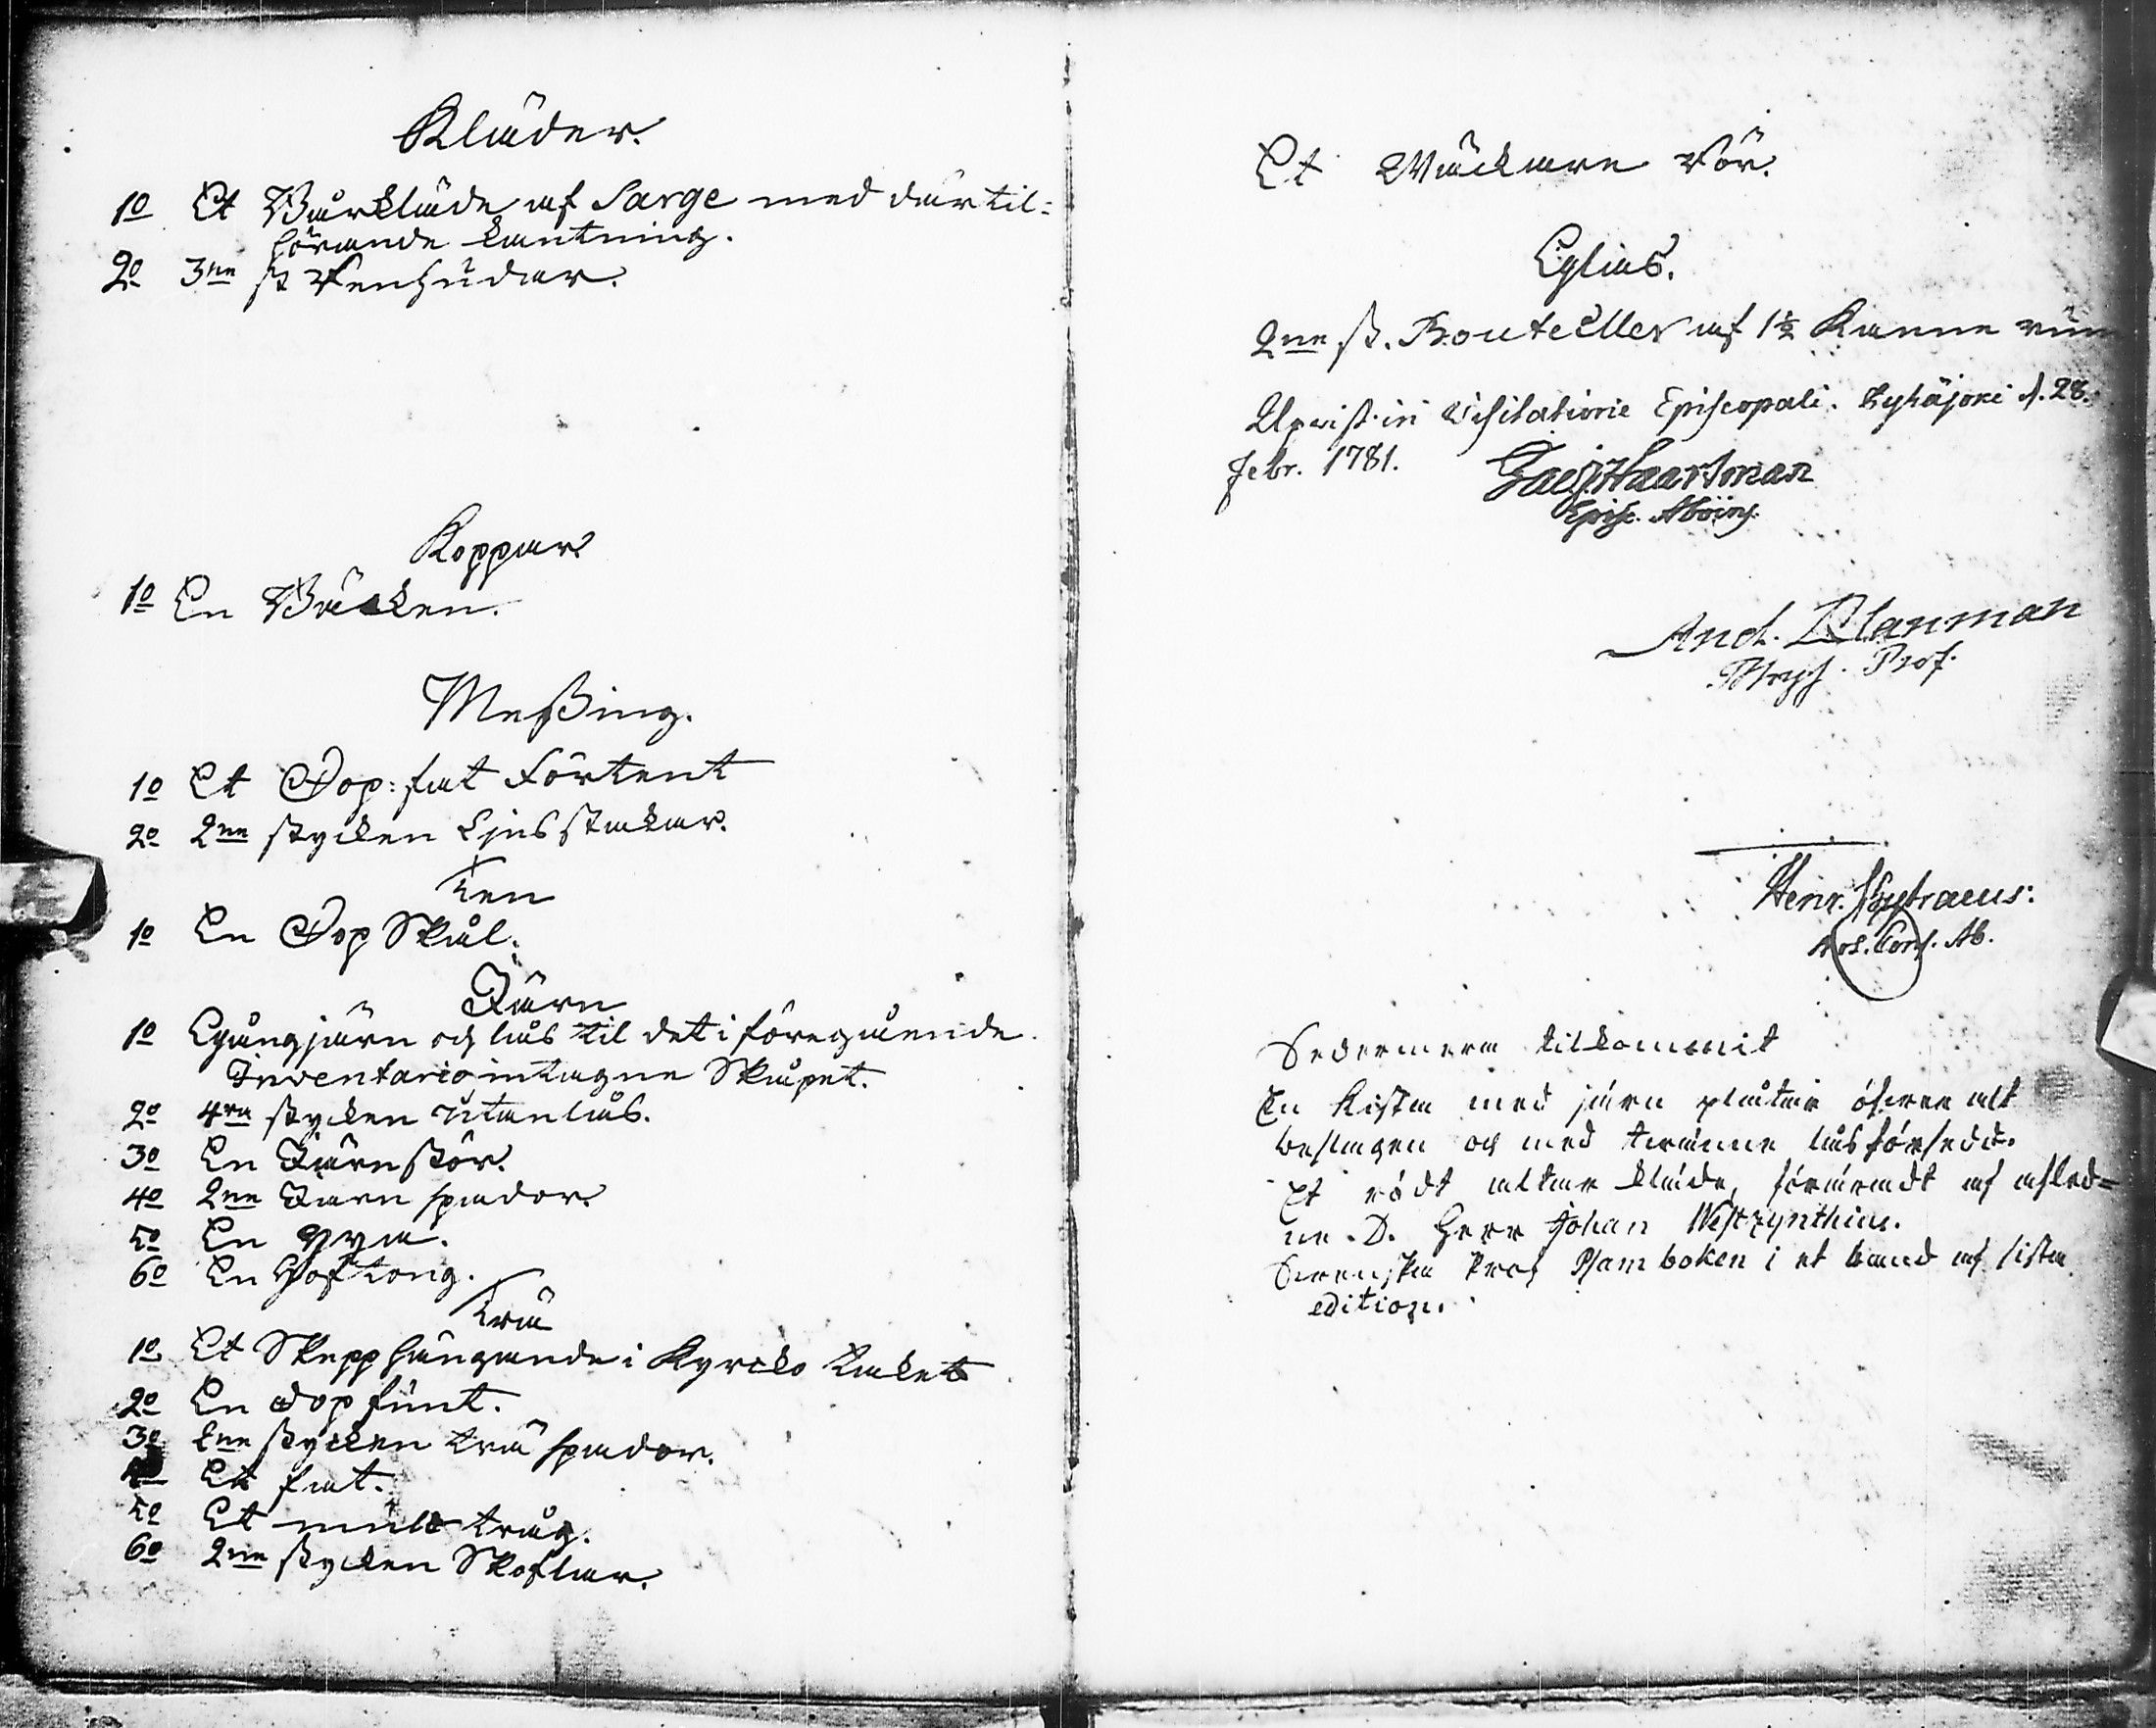 Kläder.
1o Et Bårkläde af Sarge med därtil=
hörande kantning.
2o 3ne st Renhudar.
Koppar
1o En Bäcken.
Meßing.
1o Et Dop: fat Förtent
2o 2ne stycken Ljusstakar.
Ten
1o En Dop Skål.
Järn
1o Gångjärn och lås til det i föregående
Inventario intagne Skåpet.
2o 4ra stycken Utanlås.
3o En Järnstör.
4o 2ne Järn spador
5o En
6o En Hoftong.
Trä
1o Et Skepp hängande i Kyrcko taket
2o En dopfunt.
3o 2ne stycken trä spador.
4o Et fat.
5o Et mult tråg.
6o 2ne stycken Skoflar.
Et Wäckare rör.
Glas.
2ne st. Bouteiller af 1½ Kanne rum
Upvist in Visitatione Episcopali. Pyhäjoki d. 28.
Febr. 1781. Jac. Haartman
Episc. Aboëns.
And. Planman
Phys. Prof.
Henr. Chytraeus:
Not. Cons. Ab.
Sedermera tilkommit
En Kista med järn plåtar öfver alt
beslagen och med tvänne lås försedd.
Et rödt altar kläde, föräradt af afled=
ne D. Herr Johan Westzynthius.
Svenska Prof Psam boken i et band af sista
edition.